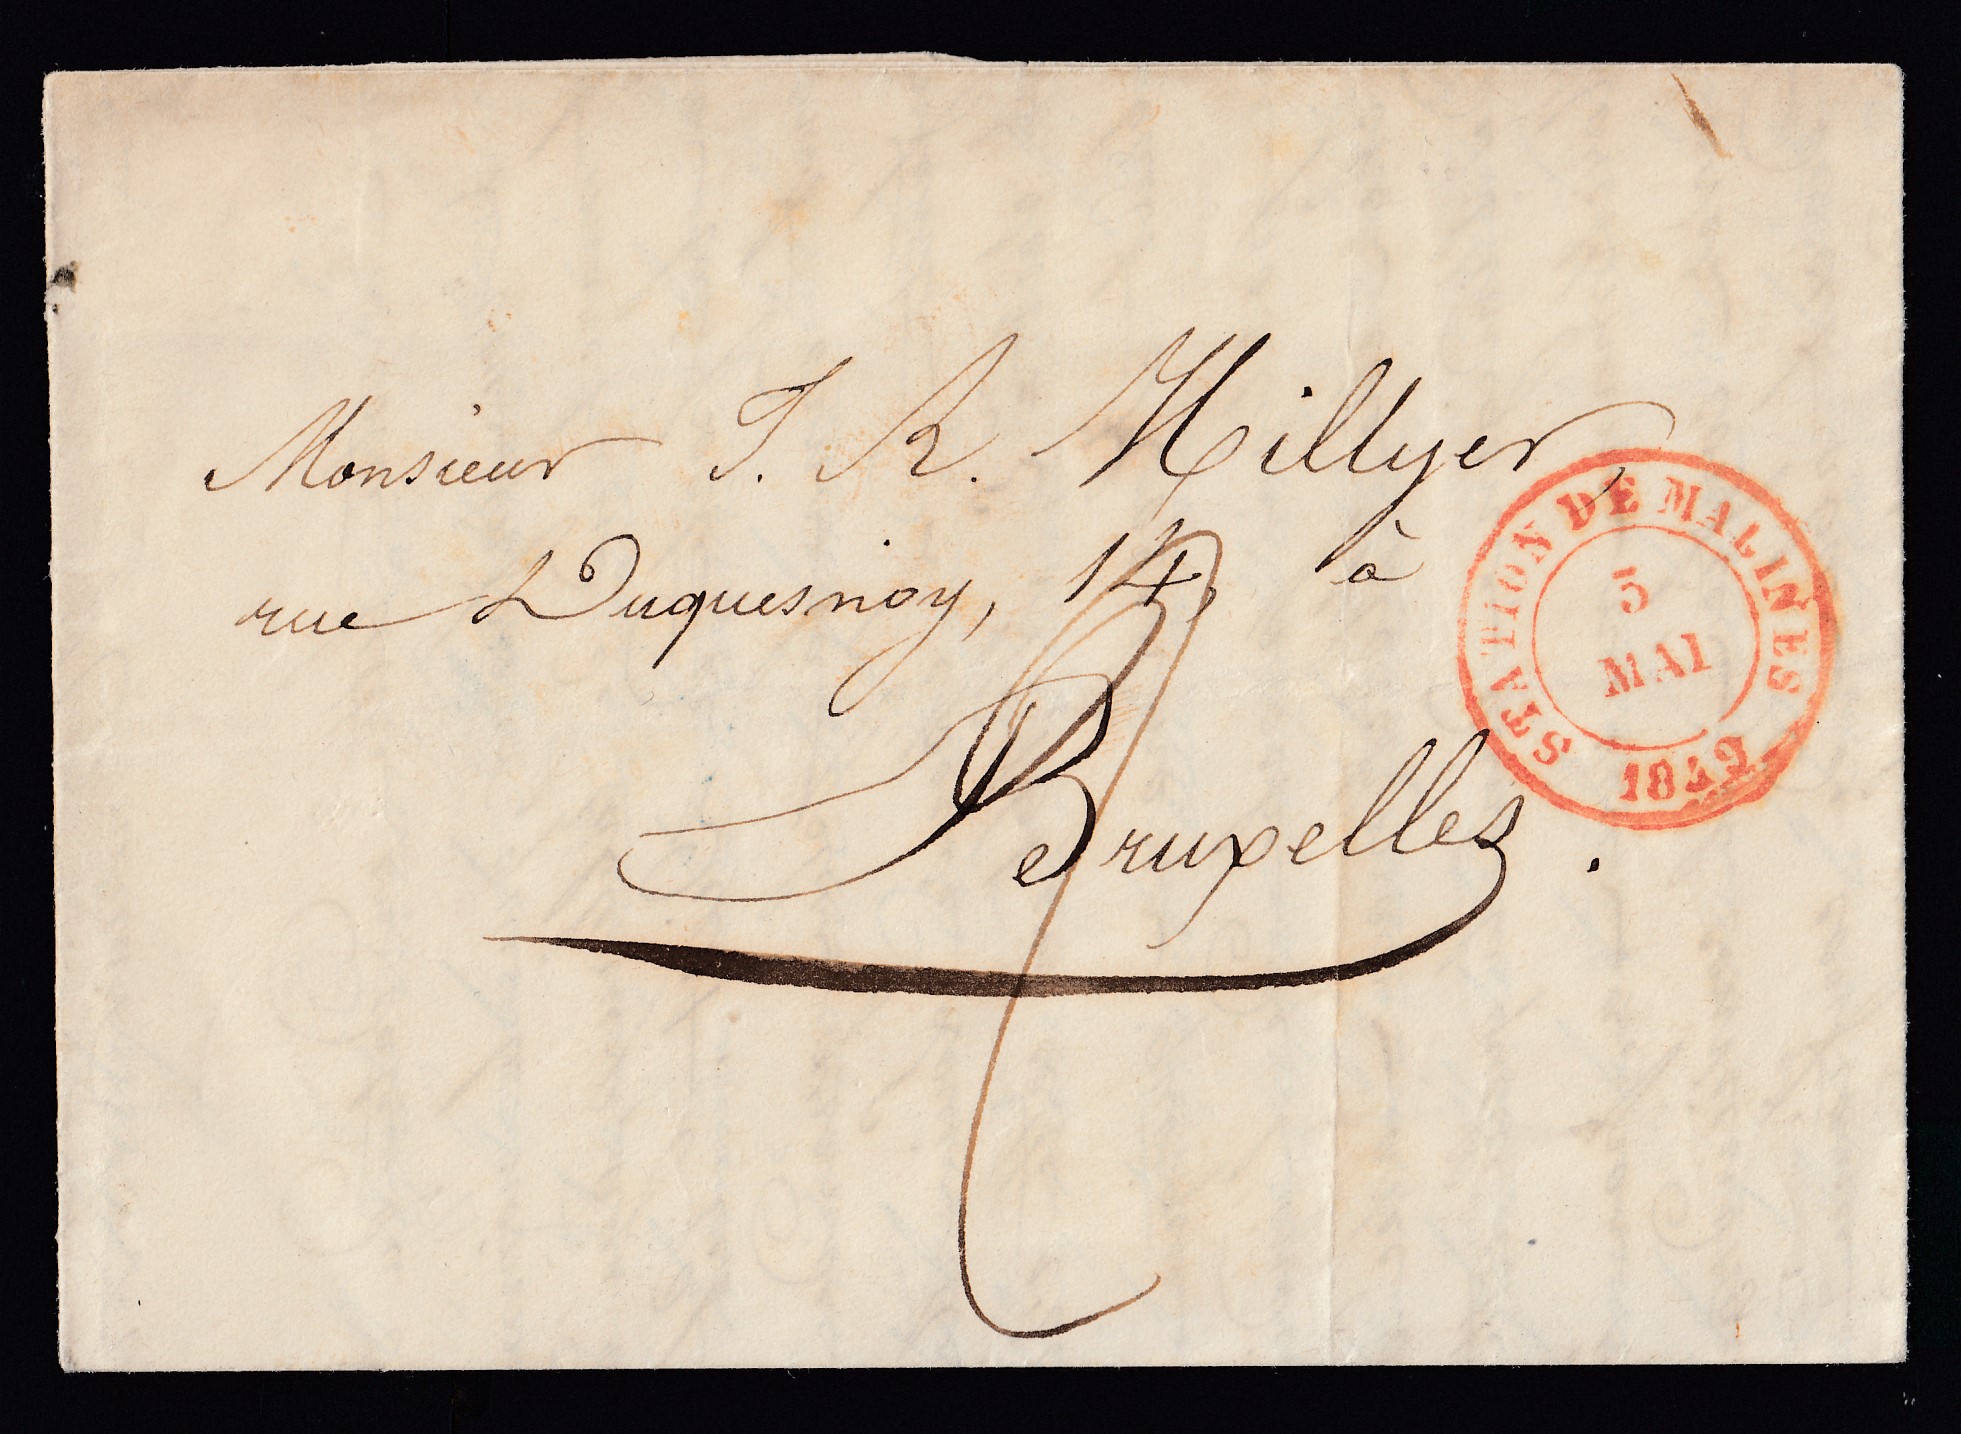 Monsieur J. R. Hillyer,
rue Duquesnoy, 14, à
Bruxelles.
STATION DE MALINES
5
MAI
1849